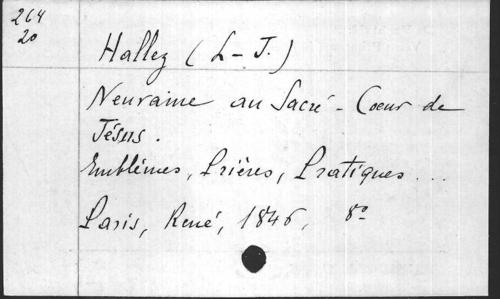 264
20
Hallez (L-J.)
Neuvaine au Sacré-Coeur de
Jésus.
Emblèmes, Prières, Pratiques...
Paris, René, 1846, 8º